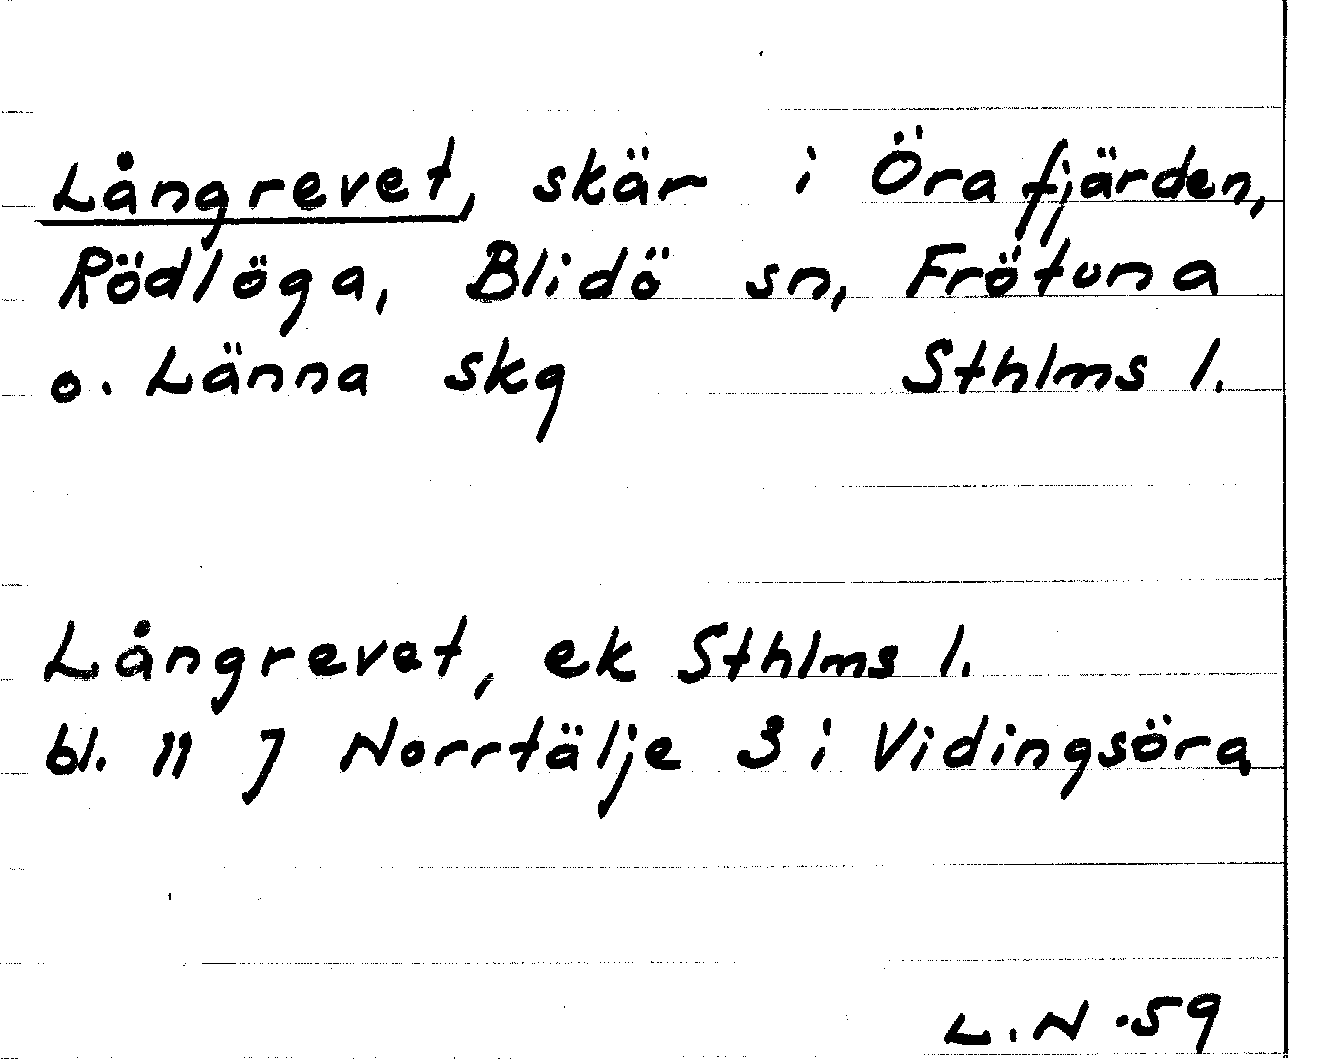 Långrevet, skär i Örafjärden,
Rödlöga, Blidö sn, Frötuna
o. Länna skg Sthlms l.
Långrevet, ek Sthlms l.
bl. 11 J Norrtälje 3 i Vidingsöra
L.N.59